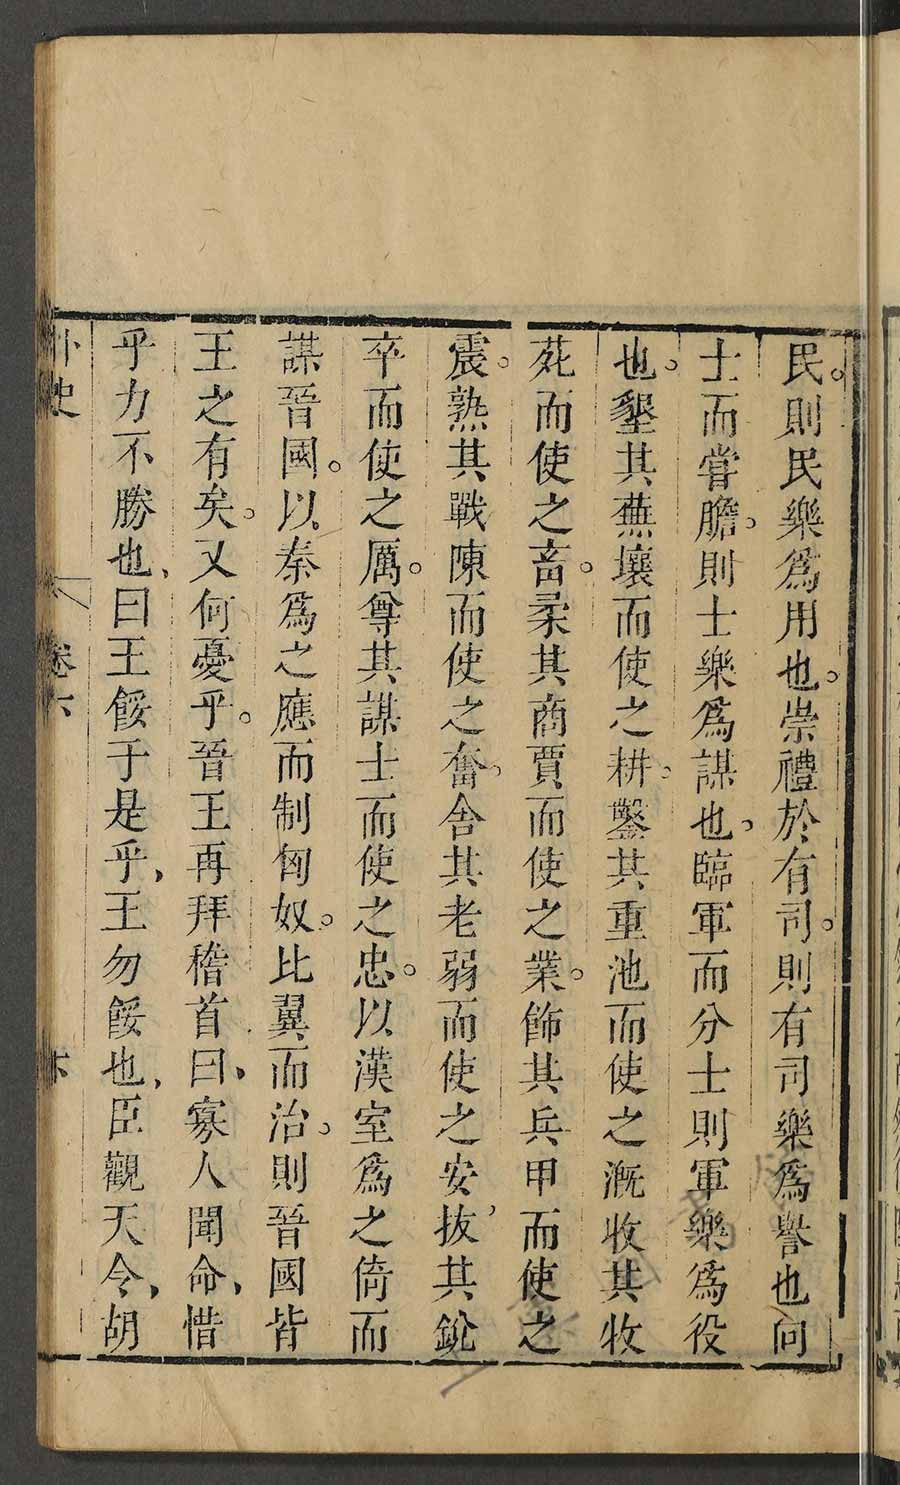 民。則民樂爲用也。崇禮於有司。則有司樂爲譽也向
士而嘗膽。則士樂爲謀也。臨軍而分士則軍樂爲役
也。墾其蕪壤而使之耕。鑿其重池而使之漑收其牧
苑而使之畜。柔其商賈而使之業。飾其兵甲而使之
震。熟其戰陳而使之奮。舍其老弱而使之安、拔其銳
卒而使之厲。尊其謀士而使之忠。以漢室爲之倚而
謀晉國。以秦爲之應而制匈奴。比翼而治。則晉國皆
王之有矣。又何憂乎。晉王再拜稽首曰、寡人聞命、惜
乎力不勝也、曰王餒于是乎、王勿餒也、臣觀天今、胡
卷六